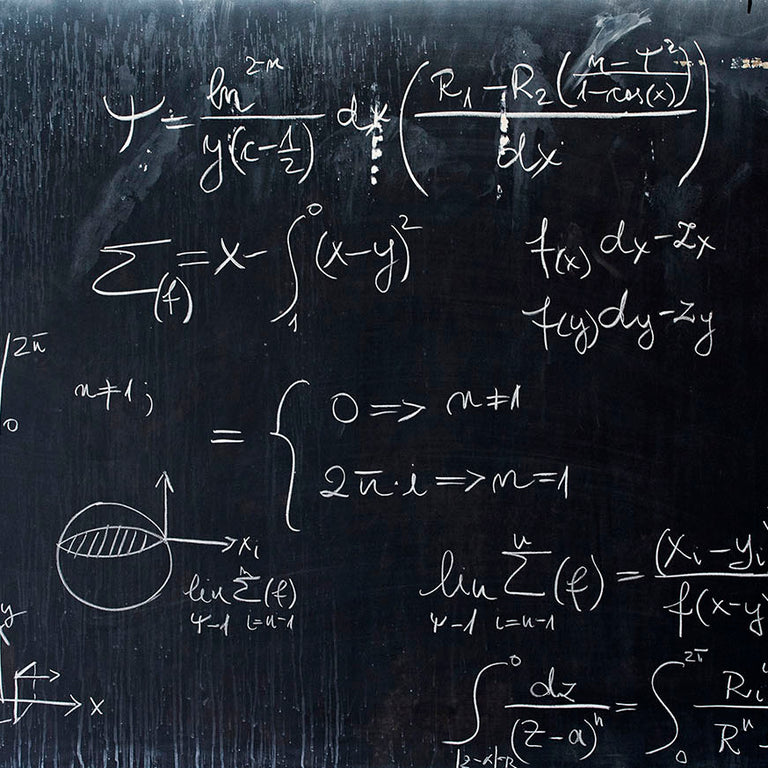 Ψ = ln^(2-n) / y(x-1/2) dx ((R₁ - R₂((n-Ψ²)/(1-cos(x)))) / dx)
Σ_(f) = x - ∫₁⁰ (x-y)²
f(x) dx-zx
f(y)dy-zy
2π
0
n≠1;
= { 0 => n≠1
2π·i => n=1
x₁
lim Ψ-1 Σ^n i=n-1 (f)
lim Ψ-1 Σ^n i=n-1 (f) = (xᵢ-yᵢ / f(x-y
y
x
∫⁰ dz / (z-a)ⁿ = ∫₀^(2π) Rᵢ / Rⁿ-